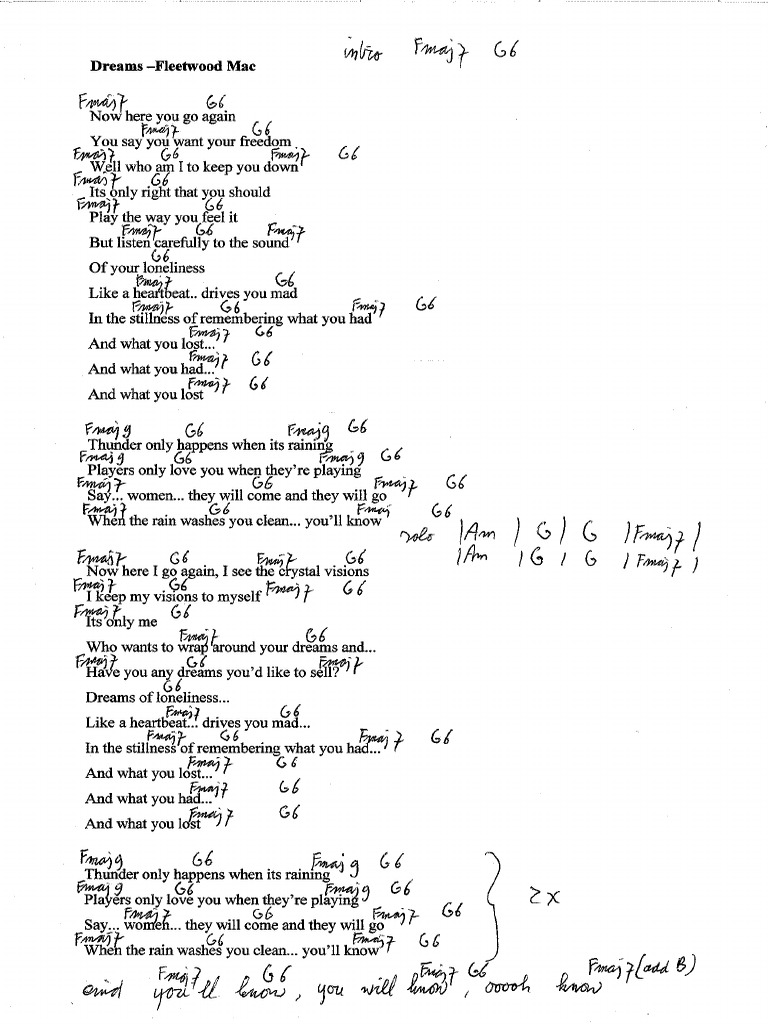 intro Fmaj7 G6
Dreams –Fleetwood Mac
Fmaj7 G6
Now here you go again
Fmaj7 G6
You say you want your freedom
Fmaj7 G6 Fmaj7 G6
Well who am I to keep you down
Fmaj7 G6
Its only right that you should
Fmaj7 G6
Play the way you feel it
Fmaj7 G6 Fmaj7
But listen carefully to the sound
G6
Of your loneliness
Fmaj7 G6
Like a heartbeat.. drives you mad
Fmaj7 G6 Fmaj7 G6
In the stillness of remembering what you had
Fmaj7 G6
And what you lost...
Fmaj7 G6
And what you had...
Fmaj7 G6
And what you lost
Fmaj9 G6 Fmaj9 G6
Thunder only happens when its raining
Fmaj9 G6 Fmaj9 G6
Players only love you when they're playing
Fmaj7 G6 Fmaj7 G6
Say... women... they will come and they will go
Fmaj7 G6 Fmaj G6
When the rain washes you clean... you'll know
solo |Am | G | G |Fmaj7 |
|Am | G | G | Fmaj7 |
Fmaj7 G6 Fmaj7 G6
Now here I go again, I see the crystal visions
Fmaj7 G6 Fmaj7 G6
I keep my visions to myself
Fmaj7 G6
Its only me
Fmaj7 G6
Who wants to wrap around your dreams and...
Fmaj7 G6 Fmaj7
Have you any dreams you'd like to sell?
G6
Dreams of loneliness...
Fmaj7 G6
Like a heartbeat... drives you mad...
Fmaj7 G6 Fmaj7 G6
In the stillness of remembering what you had...
Fmaj7 G6
And what you lost...
Fmaj7 G6
And what you had...
Fmaj7 G6
And what you lost
Fmaj9 G6 Fmaj9 G6
Thunder only happens when its raining
Fmaj9 G6 Fmaj9 G6
Players only love you when they're playing
2x
Fmaj7 G6 Fmaj7 G6
Say... women... they will come and they will go
Fmaj7 G6 Fmaj7 G6
When the rain washes you clean... you'll know
Fmaj7 G6 Fmaj7 G6 Fmaj7(add B)
and you'll know, you will know, ooooh know